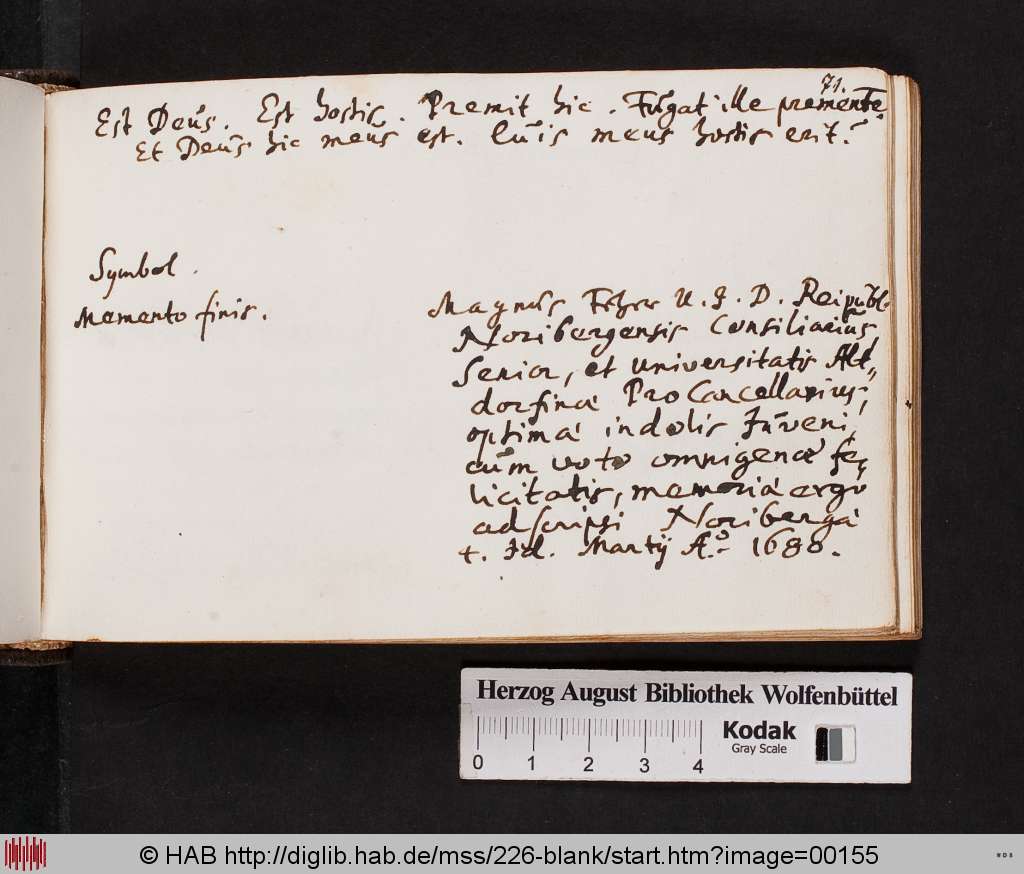 71.
Est Deus. Est hostis. Premit hic. Fugat ille premente.
Et Deus hic meus est. Cuis meus hostis erit?
Symbol.
Memento finis.
Magnus Fetzer U. J. D. Reipubl.
Noribergensis Consiliarius
Senior, et universitatis Alt„
dorfinae ProCancellarius,
optimae indolis Juveni,
cum voto omnigenae fe„
licitatis, memoriae ergo
adscripsi Noribergae
4. Id. Martij Aº. 1680.
Herzog August Bibliothek Wolfenbüttel
Kodak
Gray Scale
0 1 2 3 4
© HAB http://diglib.hab.de/mss/226-blank/start.htm?image=00155